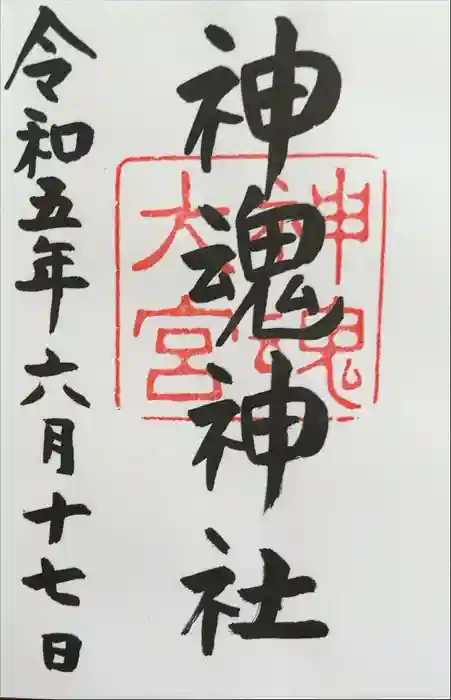 神魂神社
神魂
大宮
令和五年六月十七日